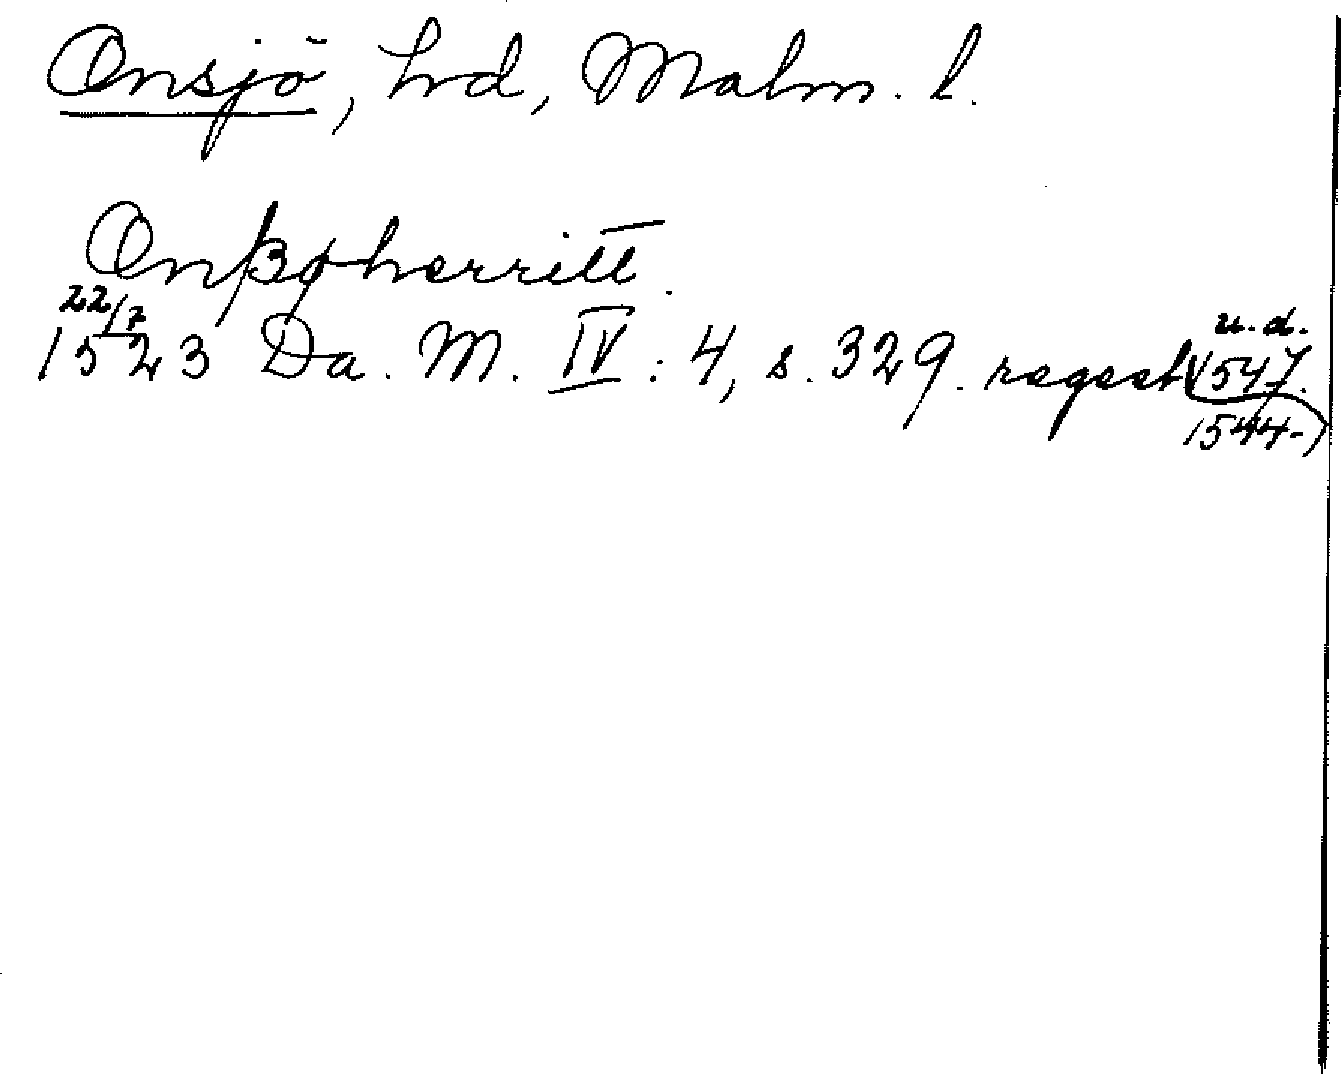 Onsjö, hd, Malm. l.
Onßøherritt.
22/7
1523 Da. M. IV: 4, s. 329. regest (1547.
u. d.
1544-)